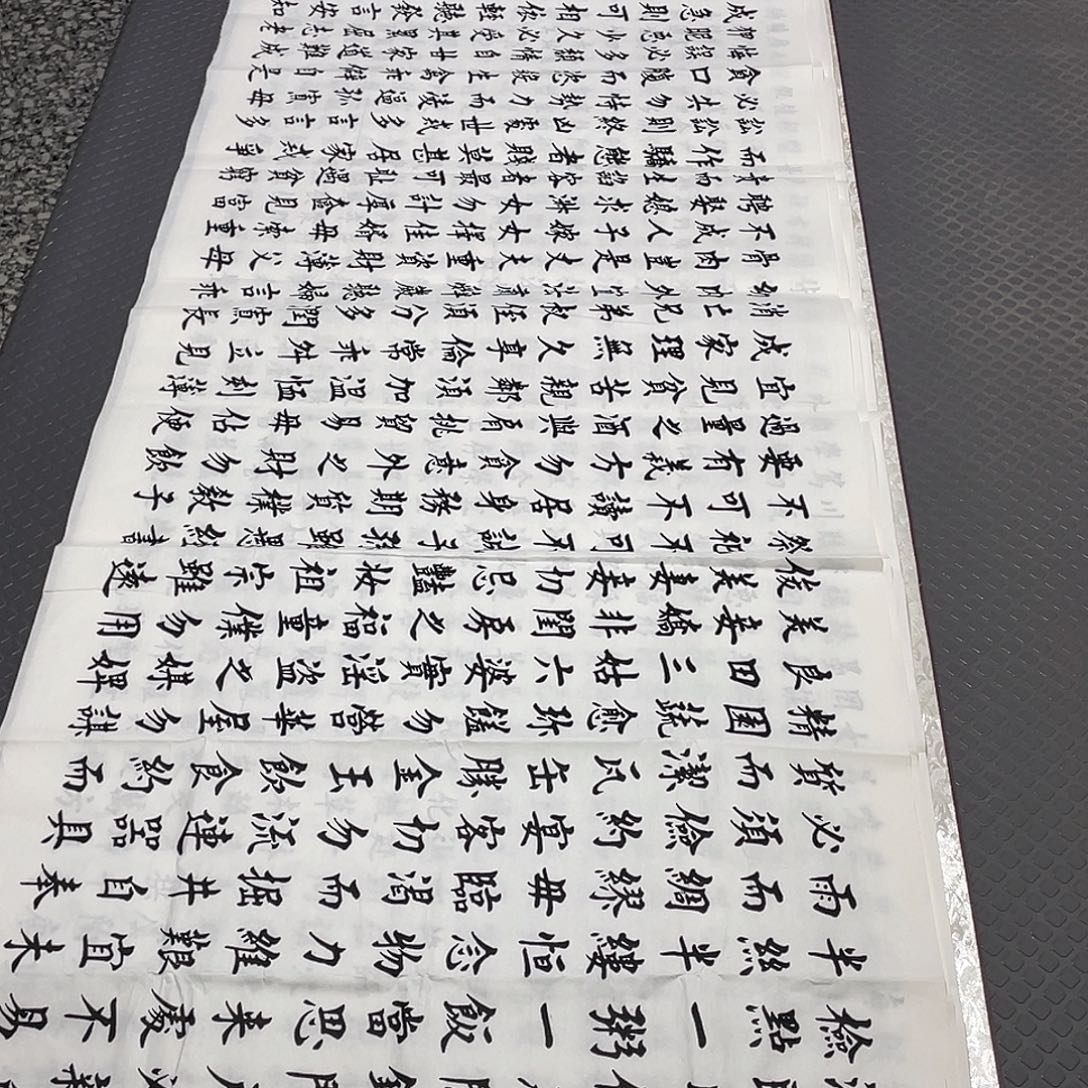 檢點一粥一飯當思來處不易
半絲半縷恒念物力維艱宜未
雨而綢繆毋臨渴而掘井自奉
必須儉約宴客切勿流連器具
質而潔瓦缶勝金玉飲食約而
精園蔬愈珍饈勿營華屋勿謀
良田三姑六婆實淫盜之媒婢
美妾嬌非閨房之福童僕勿用
俊美妻妾切忌豔妝祖宗雖遠
祭祀不可不誠子孫雖愚經書
不可不讀居身務期質樸教子
要有義方勿貪意外之財勿飲
過量之酒與肩挑貿易毋佔便
宜見貧苦親鄰須加溫恤刻薄
成家理無久享倫常乖舛立見
消亡兄弟叔侄須分多潤寡長
幼內外宜法肅辭嚴聽婦言乖
骨肉豈是丈夫重資財薄父母
不成人子嫁女擇佳婿毋索重
聘娶媳求淑女勿計厚奩見富
貴而生諂容者最可恥遇貧窮
而作驕態者賤莫甚居家戒爭
訟訟則終凶處世戒多言言多
必失勿恃勢力而凌逼孤寡毋
貪口腹而恣殺生禽乖僻自是
悔誤必多頹惰自甘家道難成
狎昵惡少久必受其累屈志老
成急則可相依輕聽發言安知